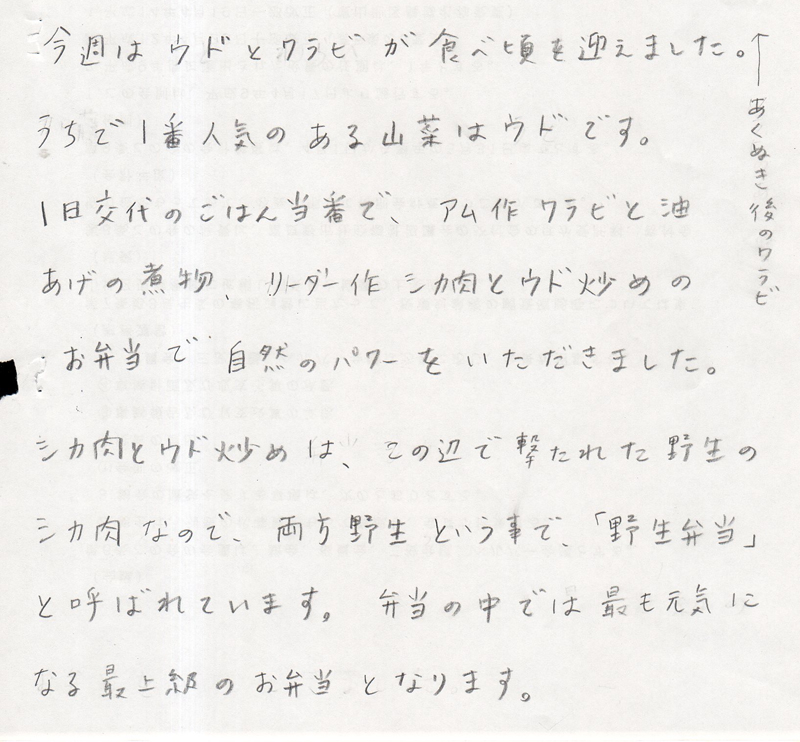 今週はウドとワラビが食べ頃を迎えました。
うちで1番人気のある山菜はウドです。
1日交代のごはん当番で、アム作ワラビと油
あげの煮物 リーダー作シカ肉とウド炒めの
お弁当で自然のパワーをいただきました。
シカ肉とウド炒めは、この辺で撃たれた野生の
シカ肉なので、両方野生という事で、「野生弁当」
と呼ばれています。弁当の中では最も元気に
なる最上級のお弁当となります。
↑あくぬき後のワラビ